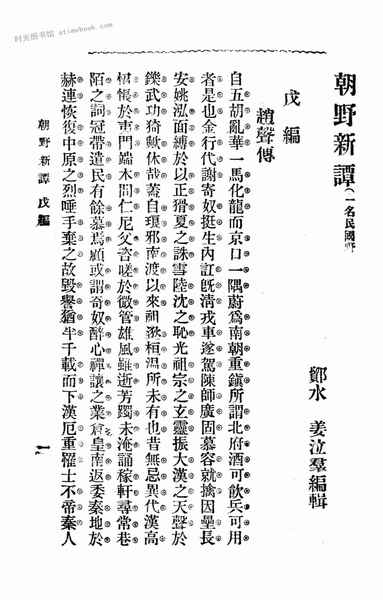 时光图书馆 atimebook.com
朝野新譚(一名民國野
鄮水 姜泣羣編輯
戊編
趙聲傳
自五胡亂華一馬化龍而京口一隅蔚爲南朝重鎮所謂北府酒可飲兵可用
者是也金行代謝寄奴挺生內訌旣淸戎車遂駕陳師廣固慕容就擒因壘長
安姚泓面縛於以正猾夏之誅雪陸沈之恥光祖宗之玄靈振大漢之天聲於
鑠武功猗歟休哉蓋自瑯邪南渡以來祖逖桓溫所未有也昔無忌異代漢高
惆悵於夷門端木問仁尼父咨嗟於微管雄風雖逝芳躅未淹誦稼軒尋常巷
陌之詞冠帶遺民有餘慕焉顧或謂奇奴醉心禪讓之業倉皇南返委秦地於
赫連恢復中原之烈唾手棄之故毀譽猶半千載而下漢厄重罹士不帝秦人
朝野新譚 戊編
一